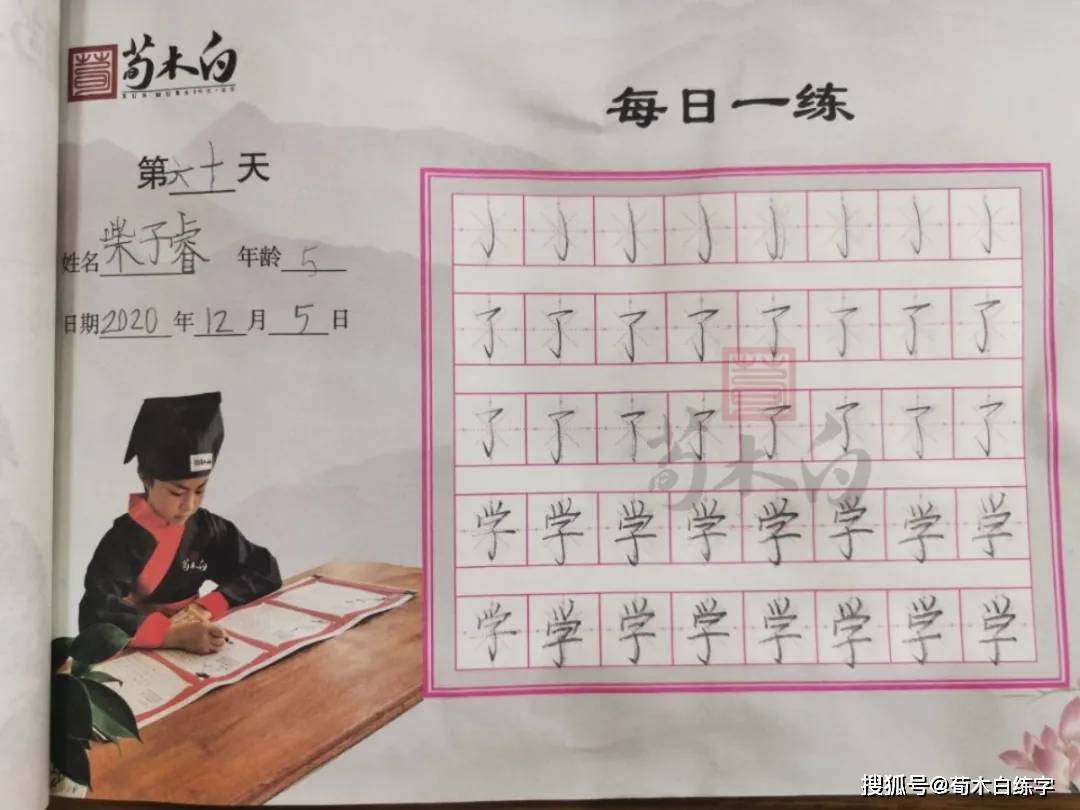 荀木白
每日一练
第六十天
姓名柴子睿 年龄5
日期2020年12月5日
亅亅亅亅亅亅亅亅
了了了了了了了了
了了了了了了了了
学学学学学学学学
学学学学学学学学
荀木白
荀木白
搜狐号@荀木白练字